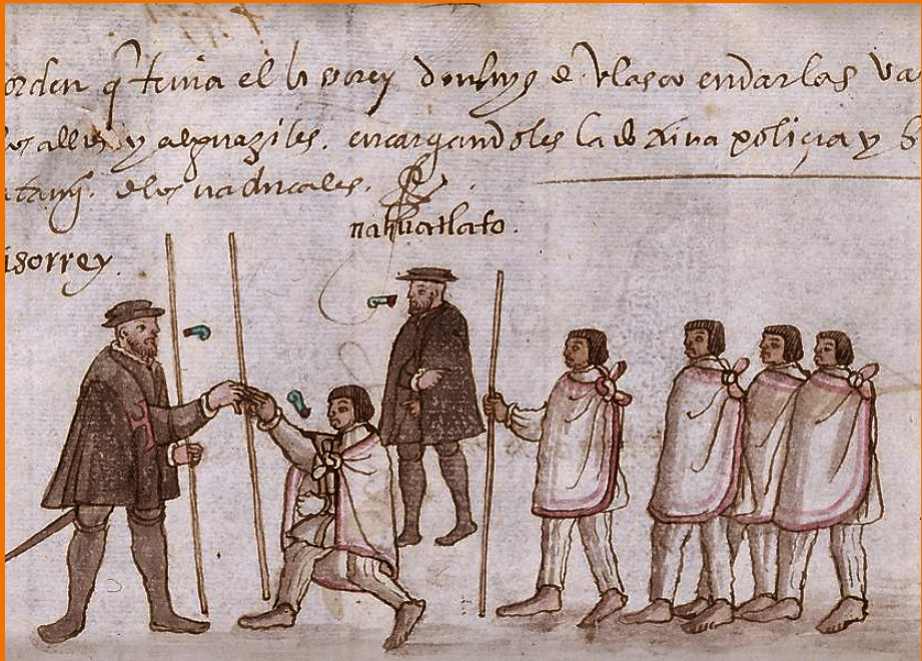 orden q tenia el bisorrey don luys de velasco en dar las va
los alldes y alguaziles. encargandoles la doctrina policia y b
tratamyº. de los naturales.
nahuatlato.
isorrey.